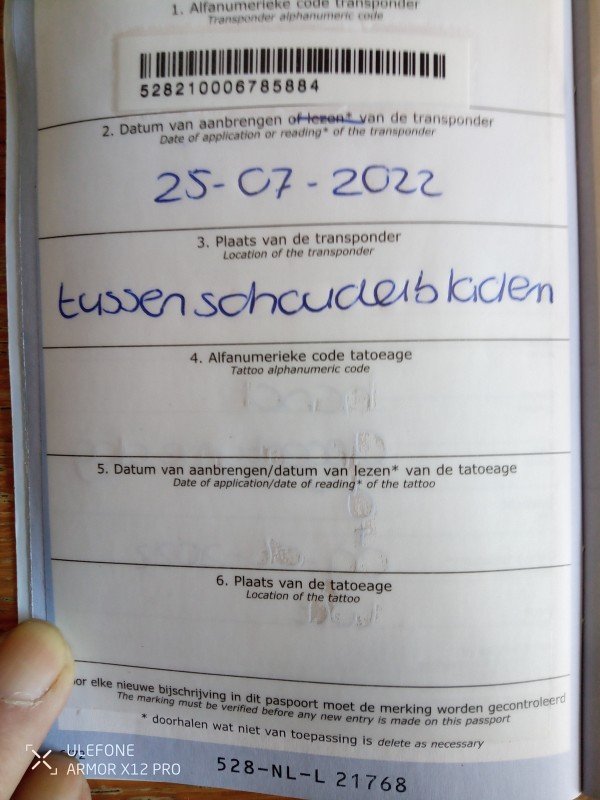 1. Alfanumerieke code transponder
Transponder alphanumeric code
528210006785884
2. Datum van aanbrengen of lezen* van de transponder
Date of application or reading* of the transponder
25-07-2022
3. Plaats van de transponder
Location of the transponder
tussen schouderbladen
4. Alfanumerieke code tatoeage
Tattoo alphanumeric code
5. Datum van aanbrengen/datum van lezen* van de tatoeage
Date of application/date of reading* of the tattoo
6. Plaats van de tatoeage
Location of the tattoo
elke nieuwe bijschrijving in dit paspoort moet de merking worden gecontroleerd
The marking must be verified before any new entry is made on this passport
* doorhalen wat niet van toepassing is delete as necessary
528-NL-L 21768
ULEFONE
ARMOR X12 PRO